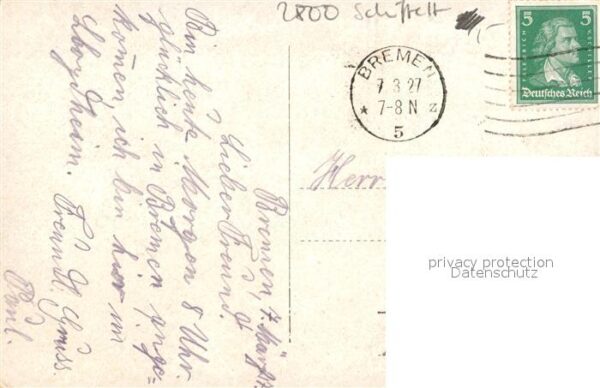 2800 Schiffelt
BREMEN
7 3 27
* 7-8 N z
5
5 5
FRIEDRICH SCHILLER
Deutsches Reich
Herr
privacy protection
Datenschutz
Bremen, 7. März 27
Lieber Freund!
Bin heute Morgen 8 Uhr
glücklich in Bremen ange=
komen ich bin hier im
Lloydheim.
Freundl. Gruss.
Paul.